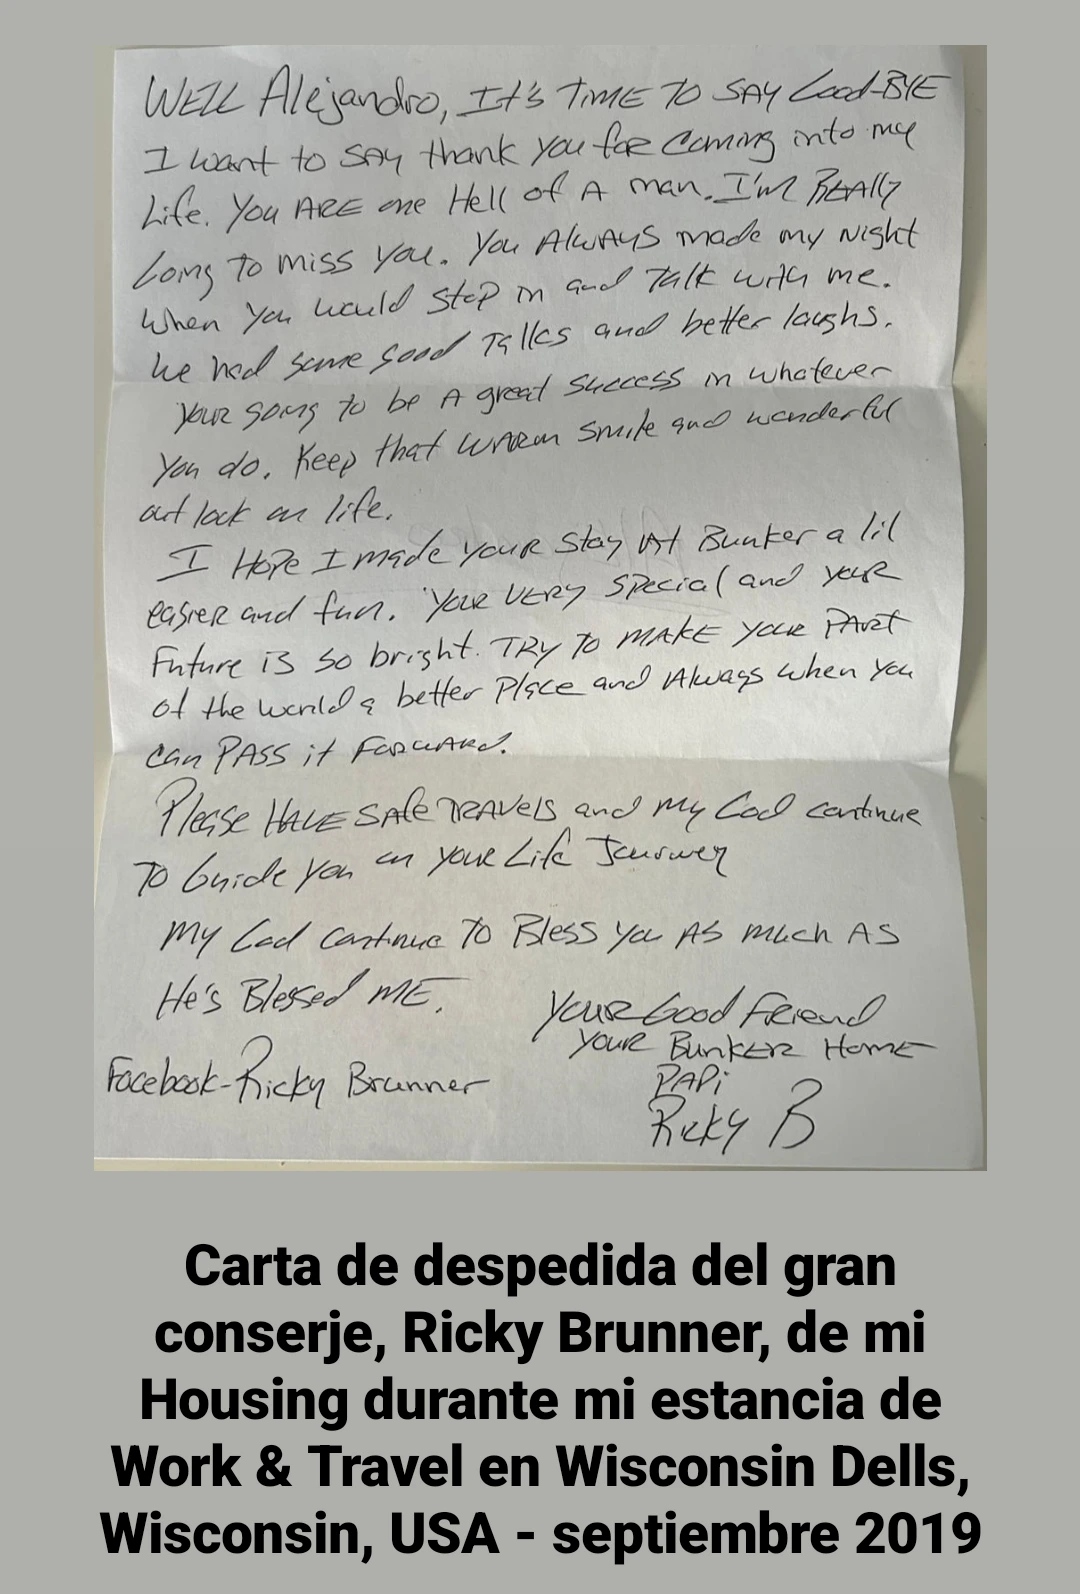 WELL Alejandro, It's TIME TO SAY Good-BYE
I want to SAY thank you for coming into my
Life. You ARE one Hell of A man. I'm REAlly
Going TO miss you. You AlwAYS made my Night
When you would stop in and Talk with me.
We had some good Talks and better laughs.
Your going to be A great success in whatever
You do. Keep that warm smile and wonderful
out look on life.
I Hope I made your stay At Bunker a lil
easier and fun. Your VERY special and your
Future is so bright. TRY TO MAKE your PArt
of the world a better Place and Always when you
can PASS it ForwArd.
Please HAVE SAfe TRAVels and My God continue
To Guide you on your Life Journey
My God continue TO Bless you AS much AS
He's Blessed ME.
Your Good Friend
Your Bunker Home
PAPi
Facebook-Ricky Brunner
Ricky B
Carta de despedida del gran
conserje, Ricky Brunner, de mi
Housing durante mi estancia de
Work & Travel en Wisconsin Dells,
Wisconsin, USA - septiembre 2019